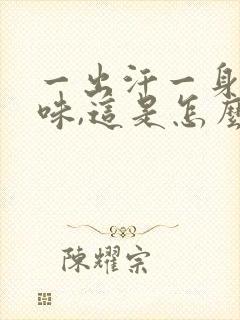 一出汗一身
味,這是怎麼
陳耀宗